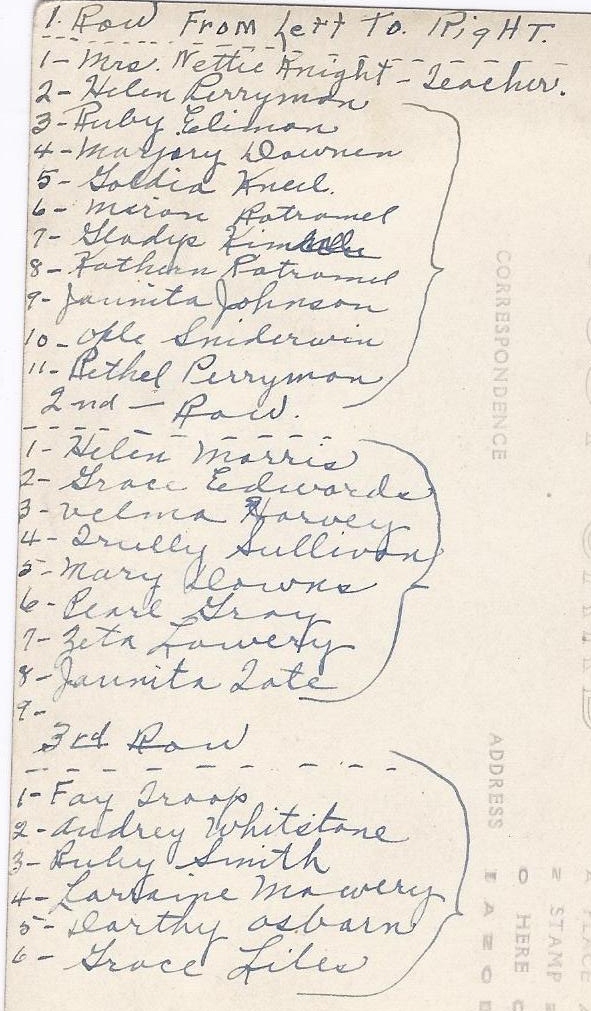 1. Row From Left To. Right.
1- Mrs. Nettie Knight - Teacher.
2- Helen Perryman
3- Ruby Eliman
4- Marjory Downen
5- Goldia
6- Ratramel
7- Gladys
8- Kathern Ratramel
9- Jaunita Johnson
10- Ople Sniderwin
11- Bethel Perryman
2nd - Row.
1- Helen Morris
2- Grace Edwards
3- Velma Harvey
4- Trully Sullivan
5- Mary Downs
6- Pearl Gray
7- Zeta Lowery
8- Jaunita Tate
9-
3rd Row
1- Fay Troop
2- Audrey Whitstone
3- Ruby Smith
4- Lorraine Mowery
5- Darthy Osbarn
6- Grace Liles
CORRESPONDENCE
ADDRESS
STAMP
HERE